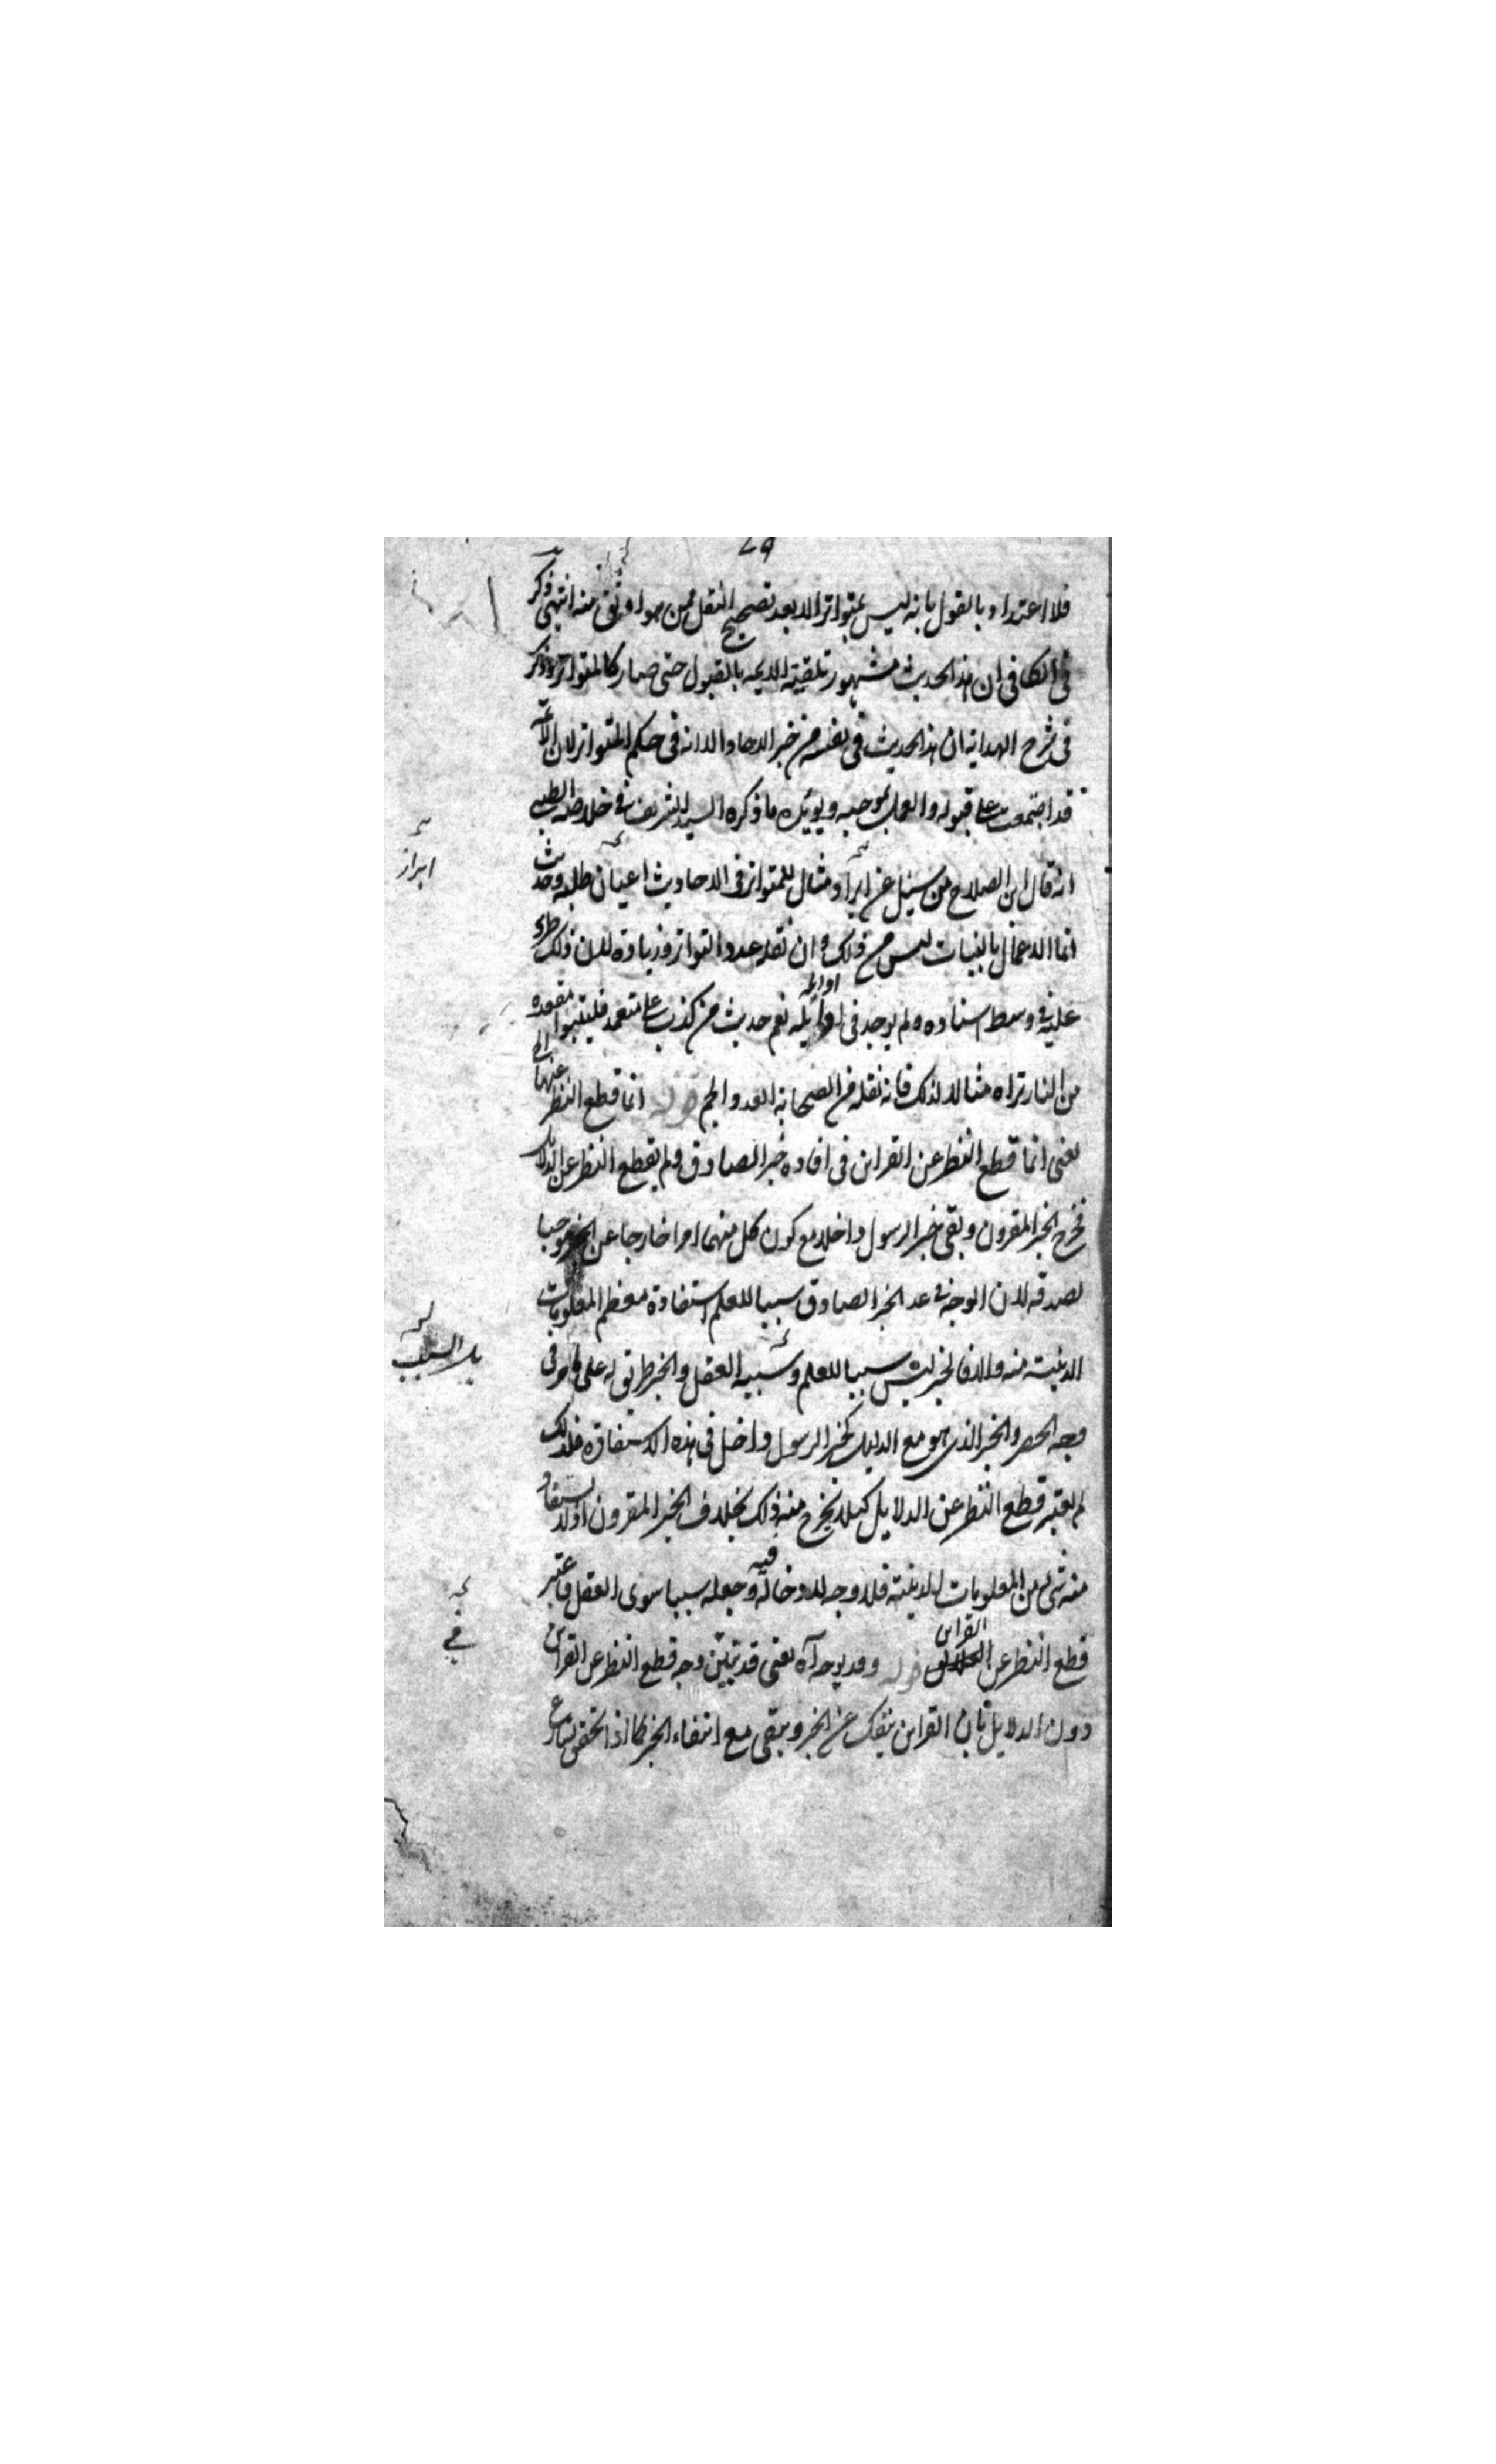 ٧٩
فلا اعتداد بالقول بانه ليس بمتواتر الا بعد تصحيح النقل ممن هو اوثق منه انتهى وذكر
فى الكافى ان هذا الحديث مشهور تلقته الايمه بالقبول حتى صار كالمتواتر وذكر
فى شرح الهدايه ان هذا الحديث فى نفسه من خبر الاحاد الا انه فى حكم المتواتر لان الائمة
قد اجتمعت على قبوله والعمل بموجبه ويؤيده ما ذكره السيد الشريف فى خلاصه الطيبى
انه قال ابن الصلاح من سئل عن ابراز مثال للمتواتر فى الاحاديث اعيان طلبه وحديث
انما الاعمال بالنيات ليس من ذلك وان نقله عدد التواتر وزيادة لان ذلك طرء
عليه فى وسط اسناده ولم يوجد فى اوايله نعم حديث من كذب على متعمدا فليتبوا مقعده
من النار تراه مثالا لذلك فانه نقله من الصحابه العدد الجم قوله انما قطع النظر عنها الى
يعنى انما قطع النظر عن القراين فى افاده خبر الصادق ولم يقطع النظر عن الدلايل
فخرج الخبر المقرون وبقى خبر الرسول داخلا مع كون كل منهما امرا خارجا عن الخبر موجبا
لصدقه لان الوجه فى عد الخبر الصادق سببا للعلم استفادة معظم المعلومات
الدينية منه والا فالخبر ليس سببا للعلم وسببه العقل والخبر طريق له على ما مر فى
وجه الحصر والخبر الذى هو مع الدليل كخبر الرسول داخل فى هذه الاستفاده فلذلك
لم يعتبر قطع النظر عن الدلايل كيلا يخرج منه ذلك بخلاف الخبر المقرون اذ لا يستفاد
منه شئ من المعلومات الدينية فلا وجه لادخاله فيه وجعله سببا سوى العقل فاعتبر
قطع النظر عن القراين قوله وقد يوجه آه يعنى قد يبين وجه قطع النظر عن القراين
دون الدلايل بان القراين ينفك عن الخبر ويبقى مع انتفاء الخبر كما اذا تحقق تسارع
ابراز
بلا السبب
فى